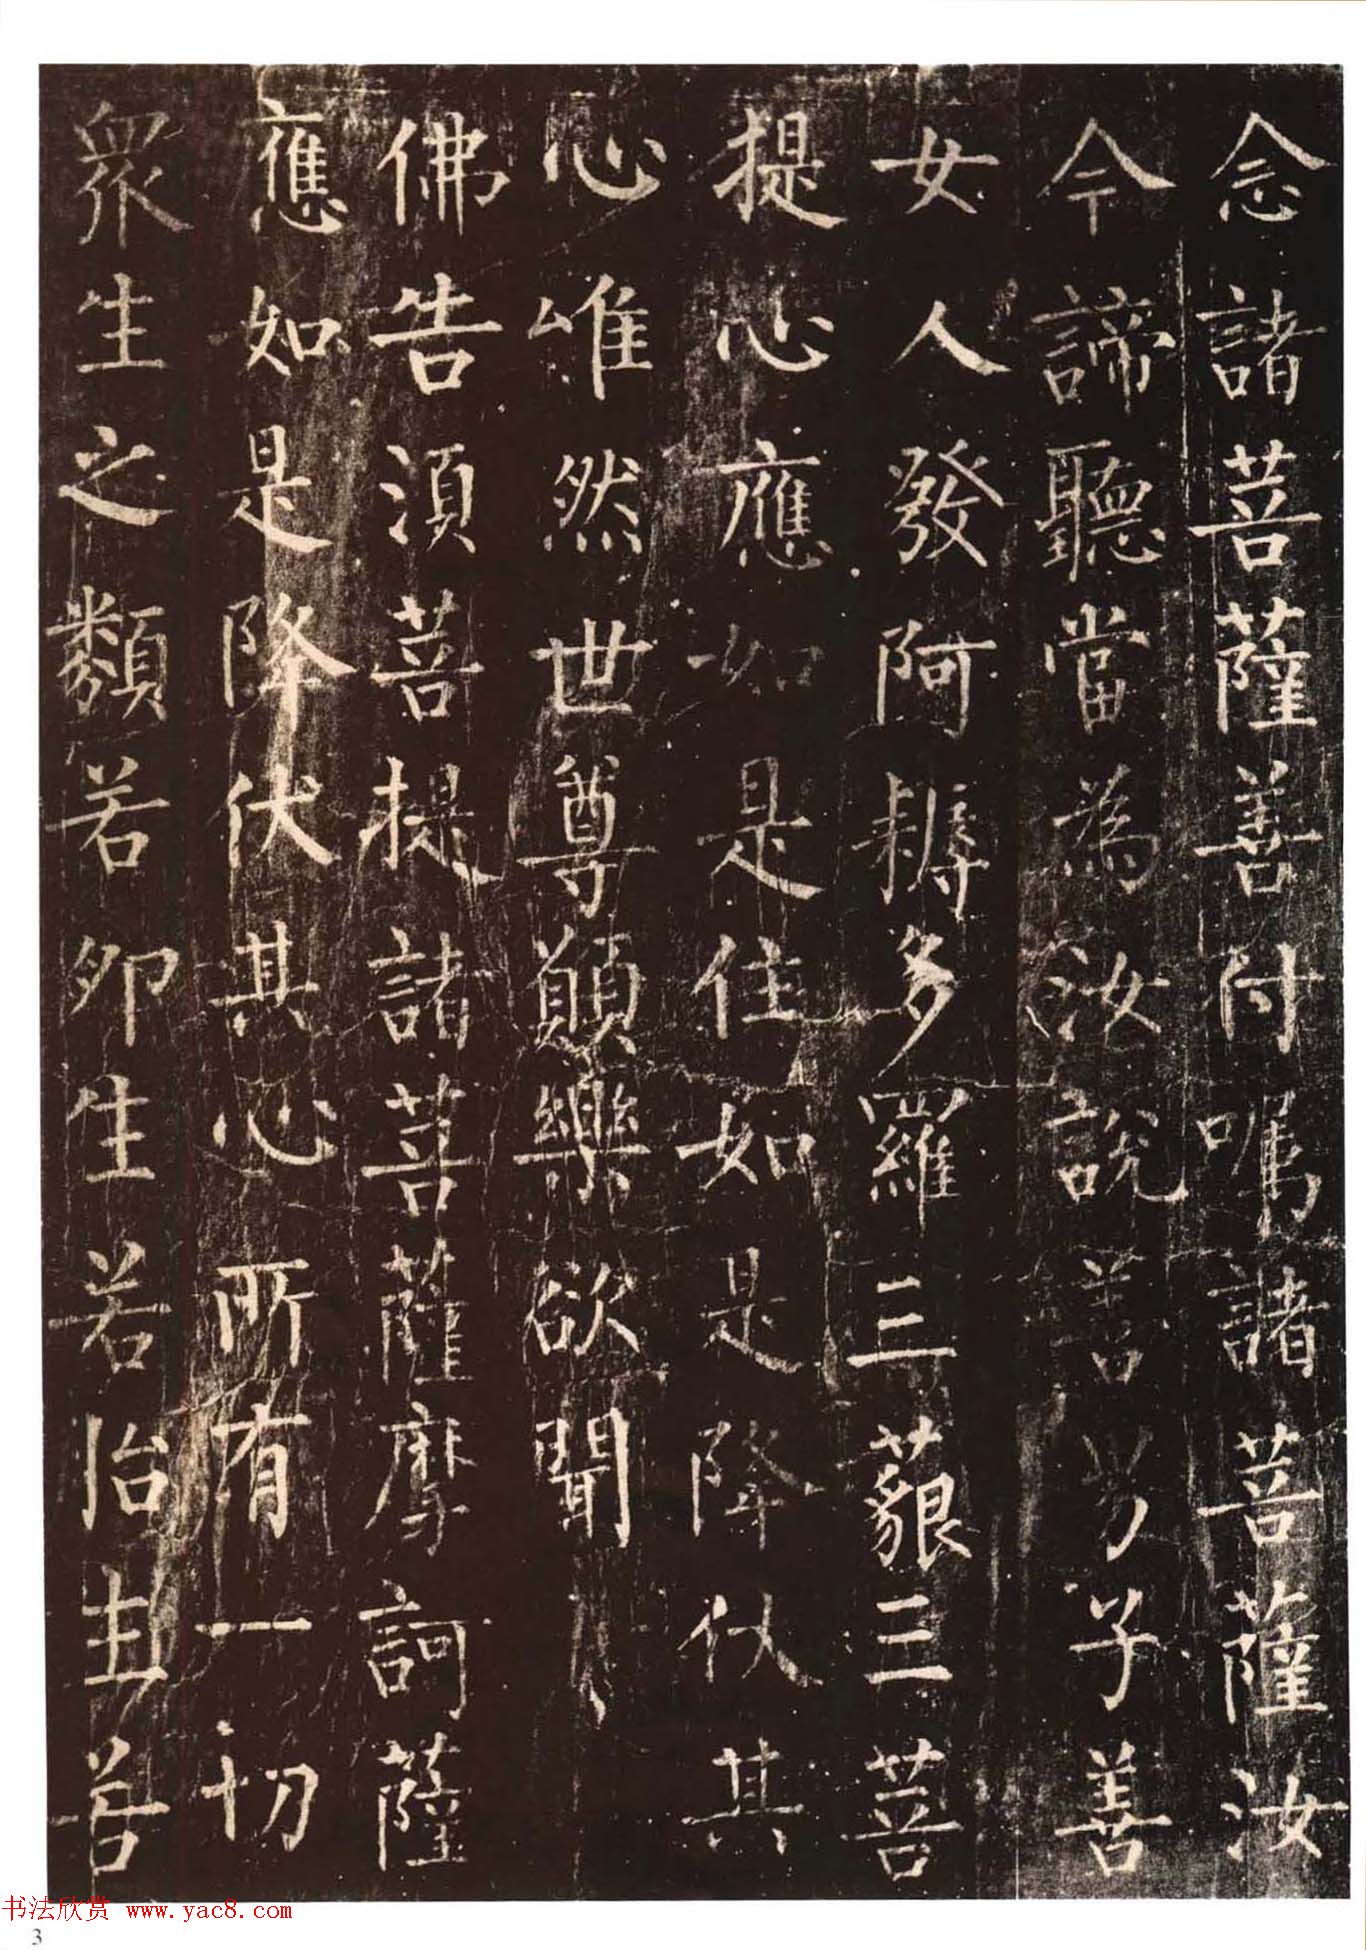 念諸菩薩善付囑諸菩薩汝
今諦聽當為汝說善男子善
女人發阿耨多羅三藐三菩
提心應如是住如是降伏其
心唯然世尊願樂欲聞
佛告須菩提諸菩薩摩訶薩
應如是降伏其心所有一切
衆生之類若卵生若胎生若
书法欣赏 www.yac8.com
3